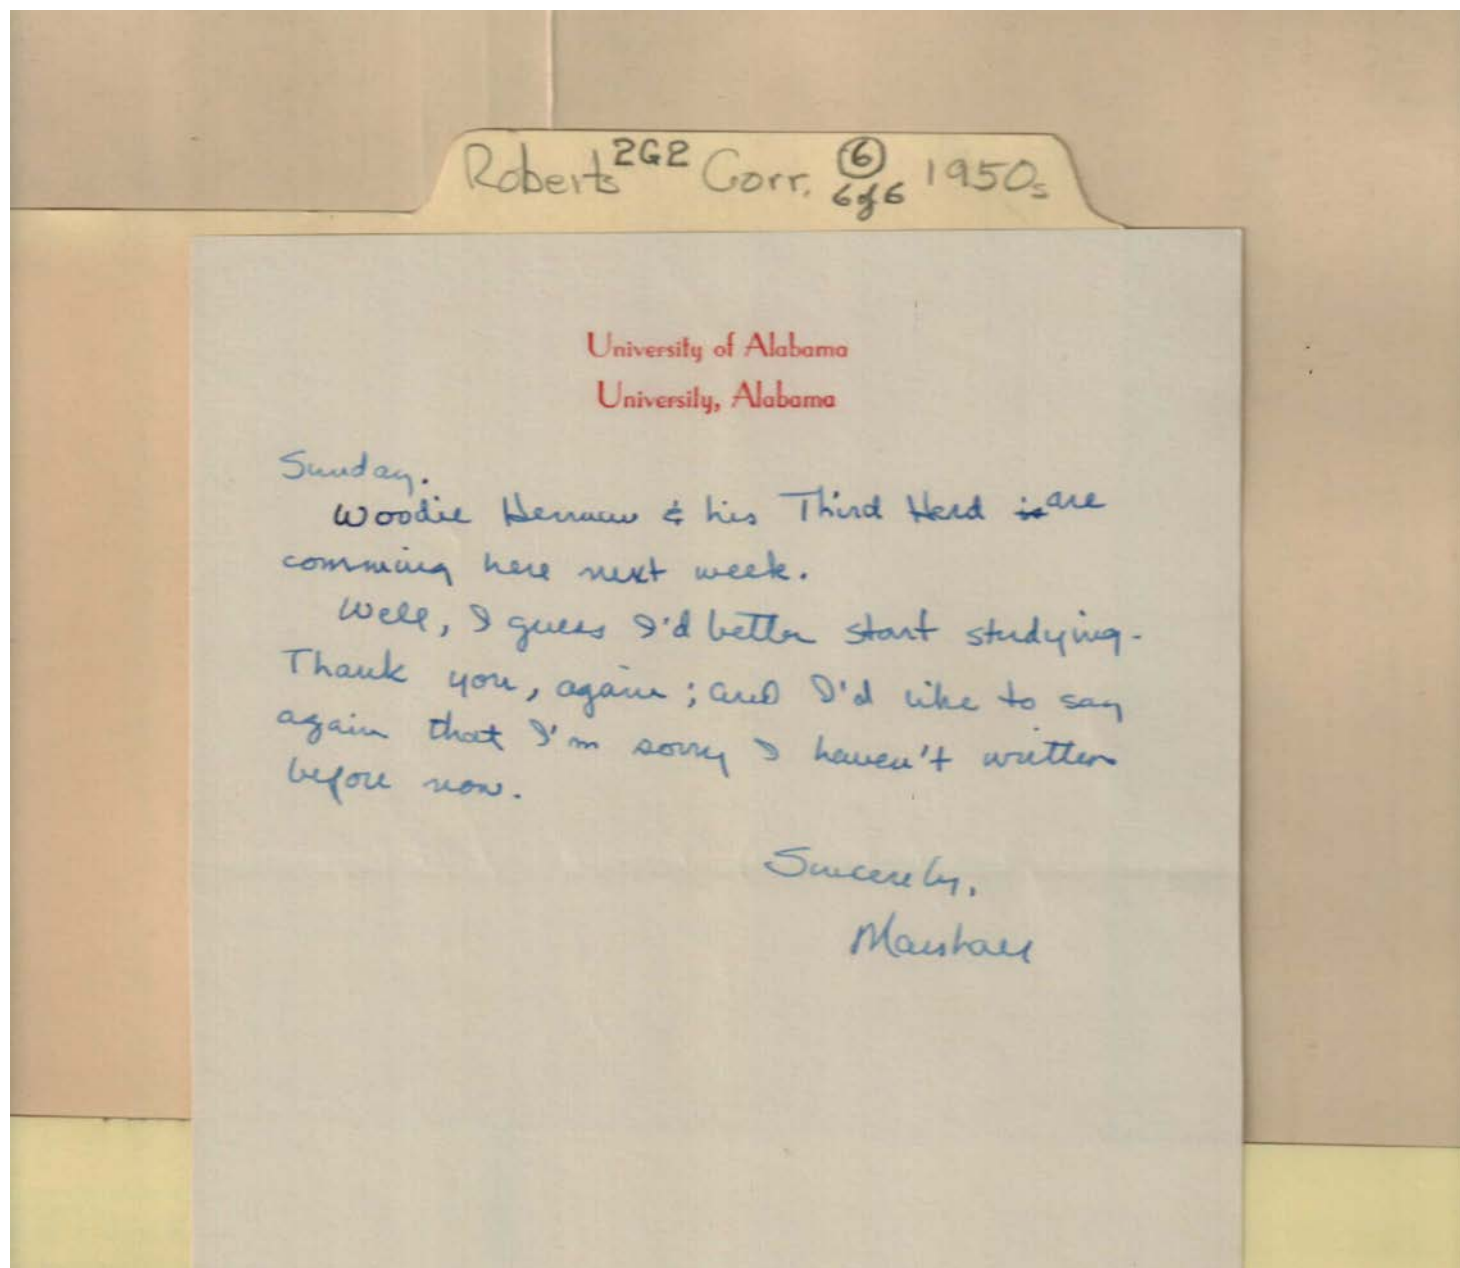 Roberts 2G2 Corr. 6 1950s
6 of 6
University of Alabama
University, Alabama
Sunday.
Woodie Herman & his Third Herd is are
comming here next week.
Well, I guess I'd better start studying.
Thank you, again; and I'd like to say
again that I'm sorry I haven't written
before now.
Sincerely,
Marshall